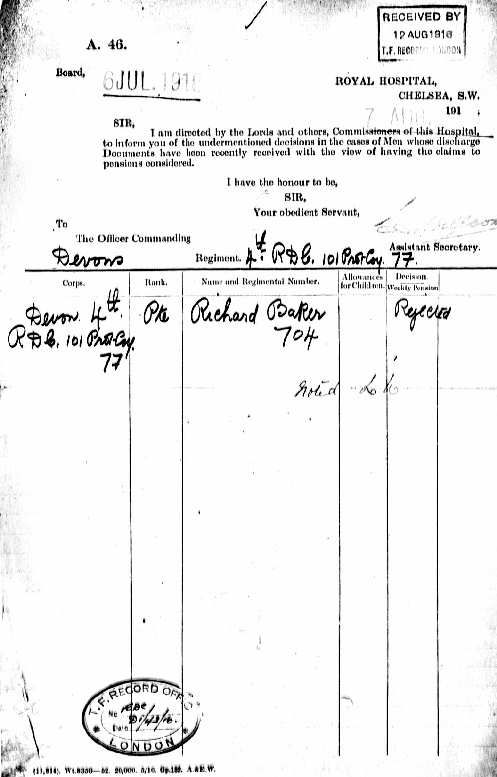 RECEIVED BY
12 AUG 1916
T.F. RECORD LONDON
A. 46.
Board,
6 JUL. 1916
ROYAL HOSPITAL,
CHELSEA, S.W.
7 AUG. 191
SIR,
I am directed by the Lords and others, Commissioners of this Hospital,
to inform you of the undermentioned decisions in the cases of Men whose discharge
Documents have been recently received with the view of having the claims to
pensions considered.
I have the honour to be,
SIR,
Your obedient Servant,
To
The Officer Commanding
Assistant Secretary.
Devons Regiment. 4th R D C. 101 Prot Coy. 77.
Corps. Rank. Name and Regimental Number. Allowances for Children. Decision. Weekly Pension
Devon 4th Pte Richard Baker Rejected
R D C. 101 Prot Coy. 704
77
Noted
T.F. RECORD OFFICE
No
Date
LONDON
(11,814). Wt.8350—52. 20,000. 5/16. Gp.122. A.&E.W.